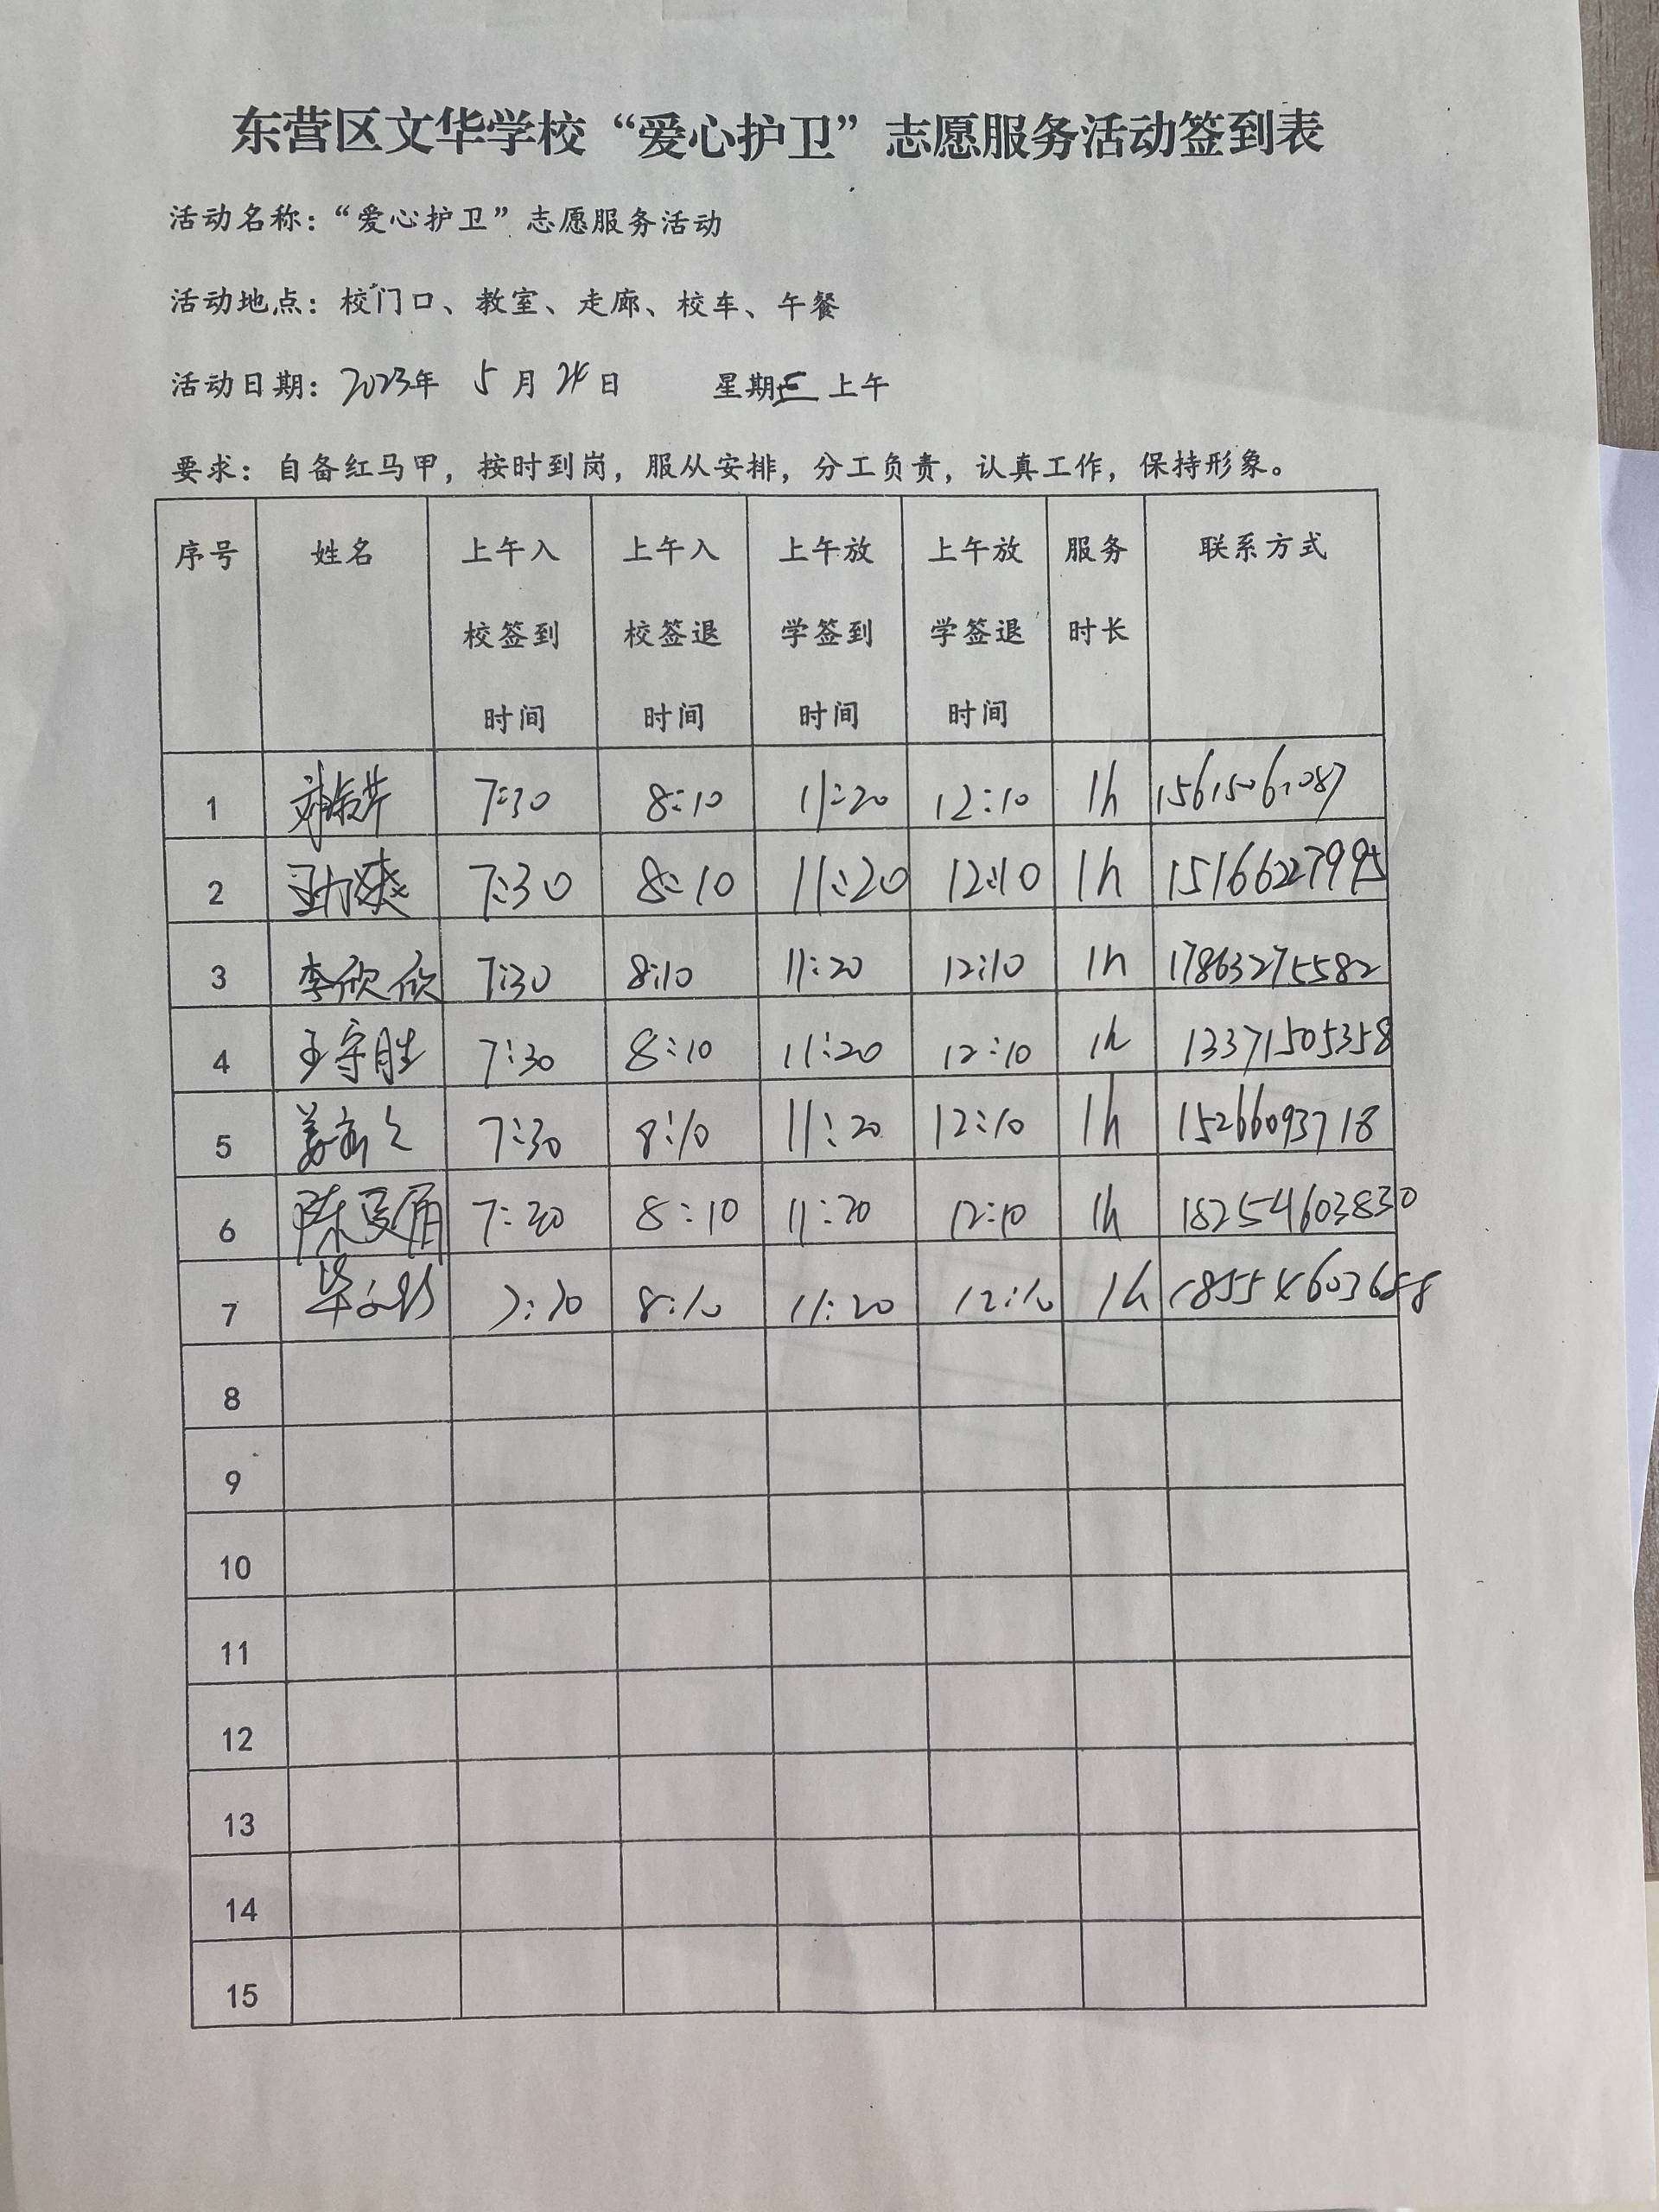 东营区文华学校“爱心护卫”志愿服务活动签到表
活动名称：“爱心护卫”志愿服务活动
活动地点：校门口、教室、走廊、校车、午餐
活动日期：2023年 5月24日 星期三 上午
要求：自备红马甲，按时到岗，服从安排，分工负责，认真工作，保持形象。
序号 姓名 上午入校签到时间 上午入校签退时间 上午放学签到时间 上午放学签退时间 服务时长 联系方式
1 7:30 8:10 11:20 12:10 1h
2 7:30 8:10 11:20 12:10 1h 15166227995
3 李欣欣 7:30 8:10 11:20 12:10 1h 17863275582
4 王守胜 7:30 8:10 11:20 12:10 1h 13371505358
5 7:30 8:10 11:20 12:10 1h 15266093718
6 7:30 8:10 11:20 12:10 1h 18254603830
7 7:30 8:10 11:20 12:10 1h
8
9
10
11
12
13
14
15